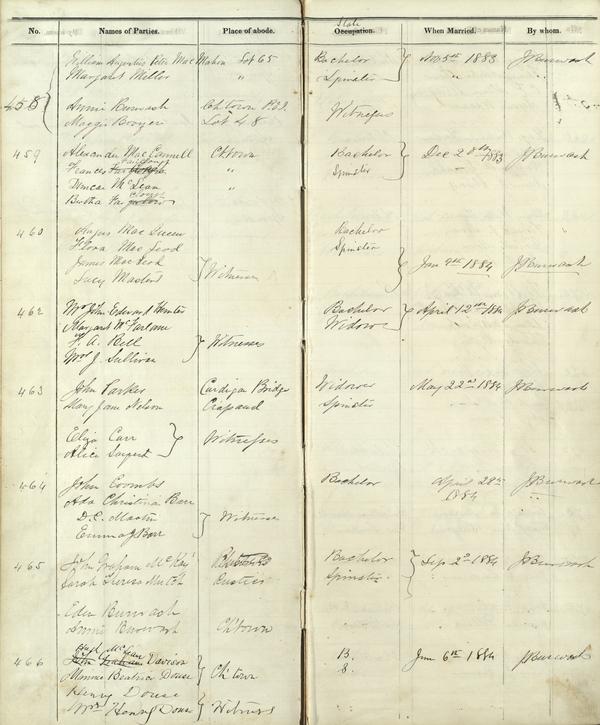 No. Names of Parties. Place of abode. State Occupation. When Married. By whom.
William Augustus Peter MacMahon Lot 65 Bachelor Nov 5th 1883 J Burwash
Margaret Miller " Spinster " "
458
Annie Burwash Ch'town P.E.I. Witnesses
Maggie Lot 48
459 Alexander MacConnell Ch'town Bachelor Dec 1883 J Burwash
Frances " Spinster
Duncan McLean "
Bertha
460 Angus MacQueen Bachelor
Flora MacLeod Spinster
James MacLeod
Lucy Masters Witnesses Jan 9th 1884 J Burwash
462 Mr John Edward Hunter Bachelor April 12th 1884 J Burwash
Margaret McFarlane Widow
F. A. Bell Witnesses
Mrs J. Sullivan
463 John Parker Cardigan Bridge Widower May 22nd 1884 J Burwash
Mary Jane Nelson Crapaud Spinster
Eliza Carr Witnesses
Alice Sargent
464 John Coombs Bachelor April 28th J Burwash
Ada Christina Barr 1884 "
D.C. Martin Witnesses
Emma J Barr
465 John Graham McKay Bachelor Sep 2nd 1884 J Burwash
Sarah Theresa Rustico Spinster
Eden Burwash
Annie Burwash Ch'town
466 Davison B. June 6th 1884 J Burwash
Beatrice Douse Ch'town S.
Henry Douse
Mrs Henry Douse Witness